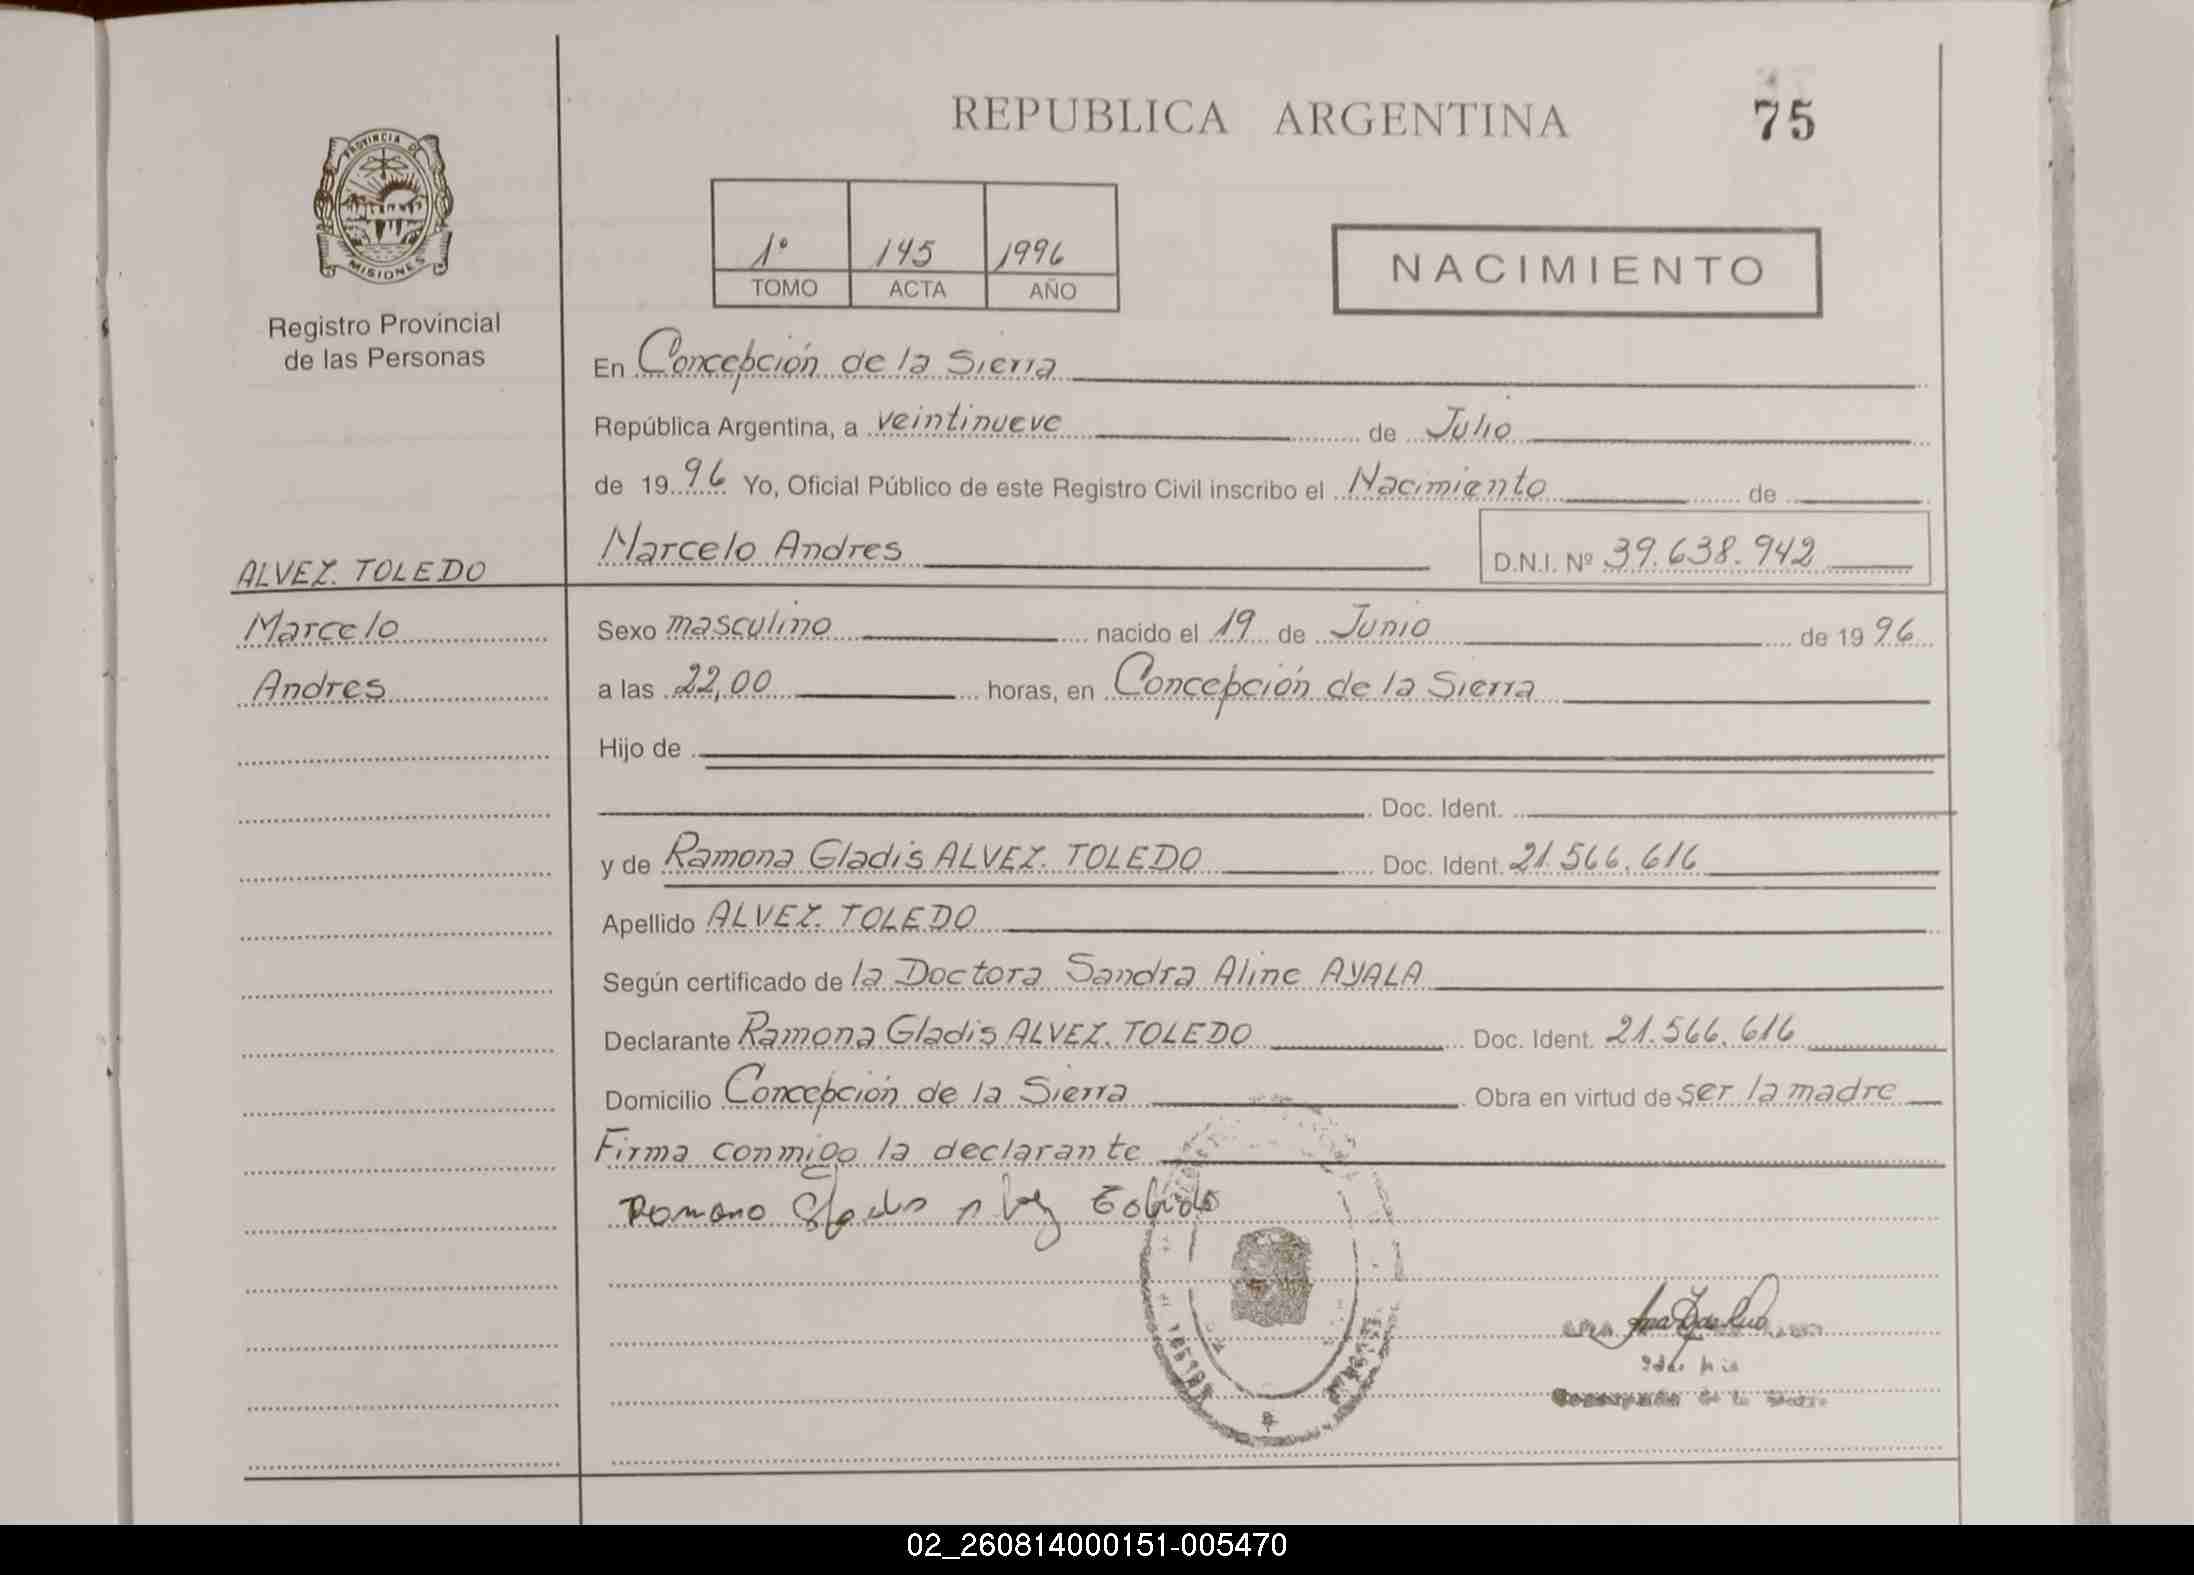 REPUBLICA ARGENTINA
75
PROVINCIA DE
MISIONES
Registro Provincial
de las Personas
1º 145 1996
TOMO ACTA AÑO
NACIMIENTO
En Concepción de la Sierra
República Argentina, a veintinueve de Julio
de 1996 Yo, Oficial Público de este Registro Civil inscribo el Nacimiento de
Marcelo Andres D.N.I. Nº 39.638.942
ALVEZ. TOLEDO
Marcelo
Andres
Sexo masculino nacido el 19 de Junio de 1996
a las 22,00 horas, en Concepción de la Sierra
Hijo de
Doc. Ident.
y de Ramona Gladis ALVEZ. TOLEDO Doc. Ident. 21.566.616
Apellido ALVEZ. TOLEDO
Según certificado de la Doctora Sandra Aline AYALA
Declarante Ramona Gladis ALVEZ. TOLEDO Doc. Ident. 21.566.616
Domicilio Concepción de la Sierra Obra en virtud de ser la madre
Firma conmigo la declarante
de la
02_260814000151-005470